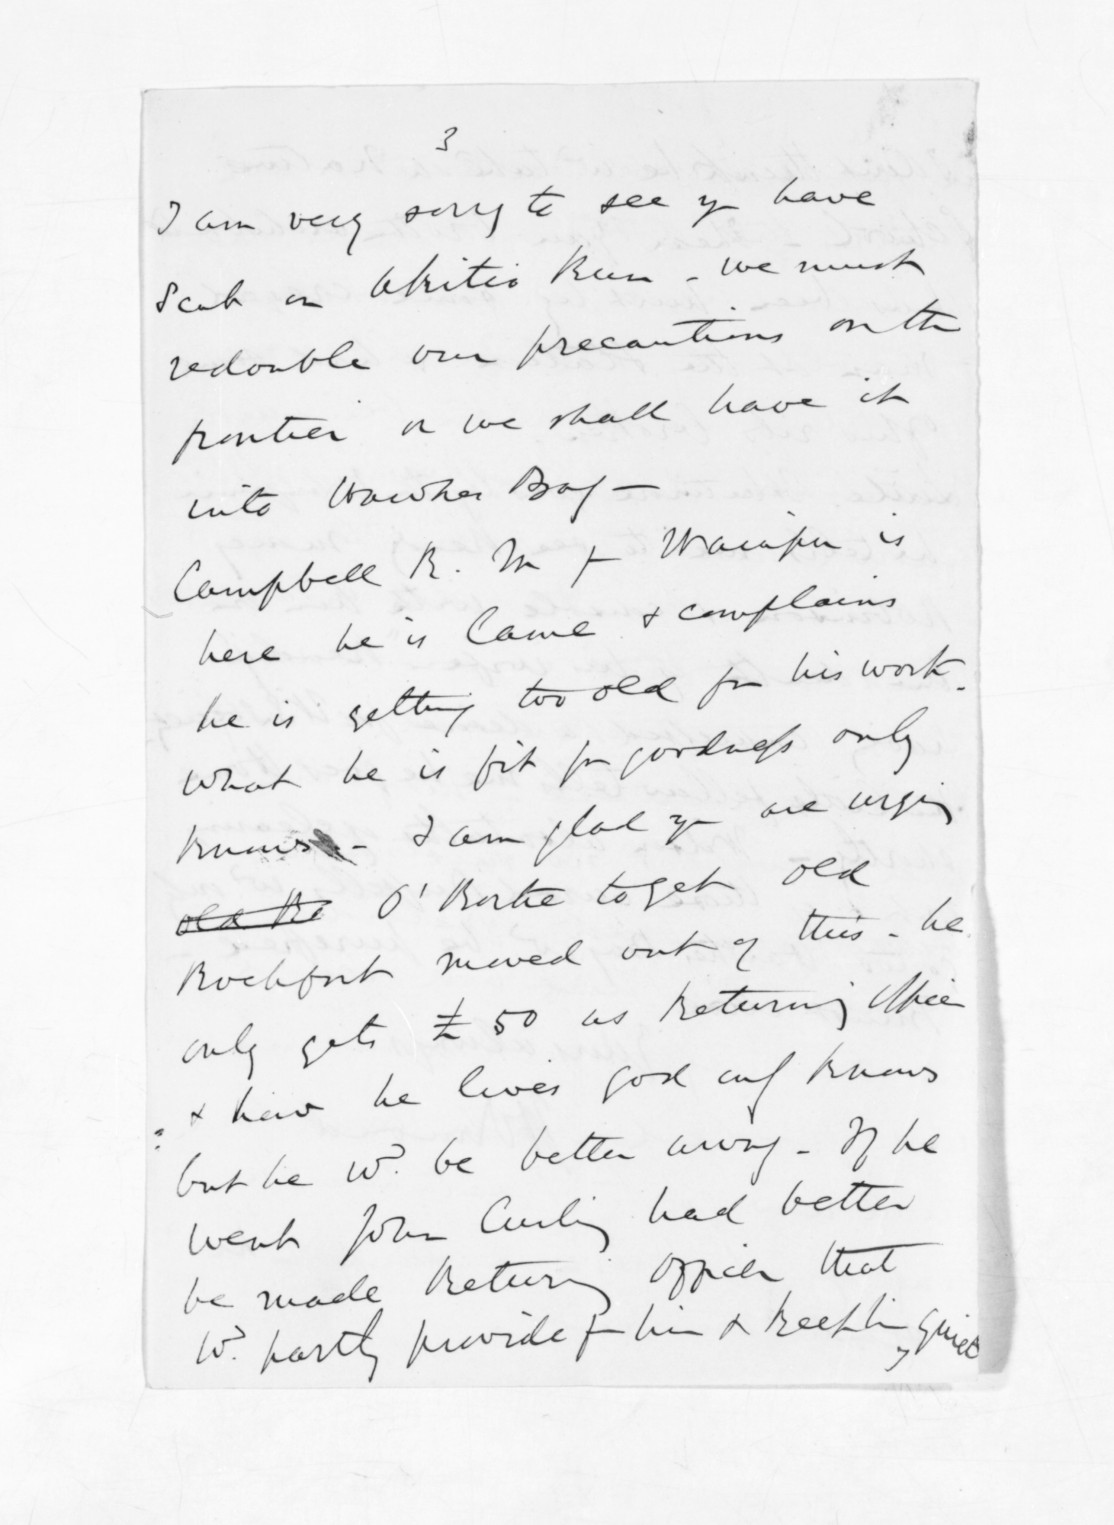 3
I am very sorry to see yr have
Scab on Akitio Run - we must
redouble our precautions on the
frontier or we shall have it
into Hawkes Bay -
Campbell R. M for Waiapu is
here he is lame & complains
he is getting too old for his work -
what he is fit for goodness only
knows - I am glad yr are urging
old Ro O'Rorke to get old
Rochfort moved out of this - he
only gets £50 as Returning Officer
& how he lives god only knows
but he wd. be better away - If he
went John Curling had better
be made Returning Officer that
wd. partly provide for him & keep him quiet